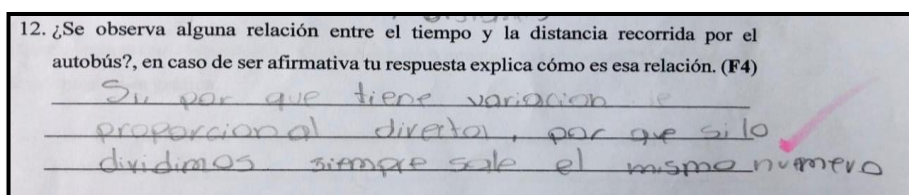 12. ¿Se observa alguna relación entre el tiempo y la distancia recorrida por el
autobús?, en caso de ser afirmativa tu respuesta explica cómo es esa relación. (F4)
Si, por que tiene variacion
proporcional directa, por que si lo
dividimos siempre sale el mismo numero